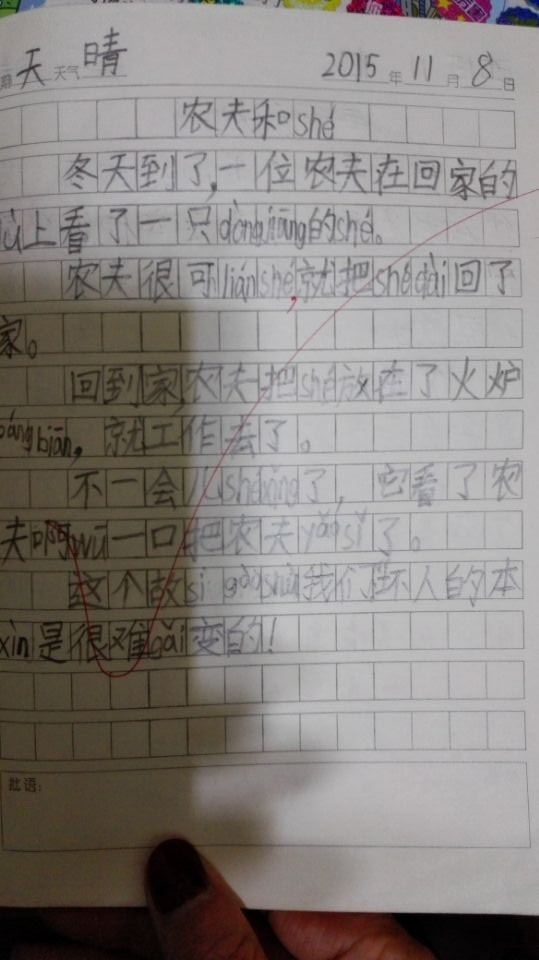 期 天 天气 晴 2015 年 11 月 8 日
农夫和shé
冬天到了,一位农夫在回家的
lù上看了一只dòngjiāng的shé。
农夫很可liánshé,就把shédài回了
家。
回到家,农夫把shé放在了火炉
pángbiān,就工作去了。
不一会儿shéxǐng了,它看了农
夫啊wū一口把农夫yǎosǐ了。
这个故si gàoshù我们坏人的本
xìn是很难gǎi变的!
批语: